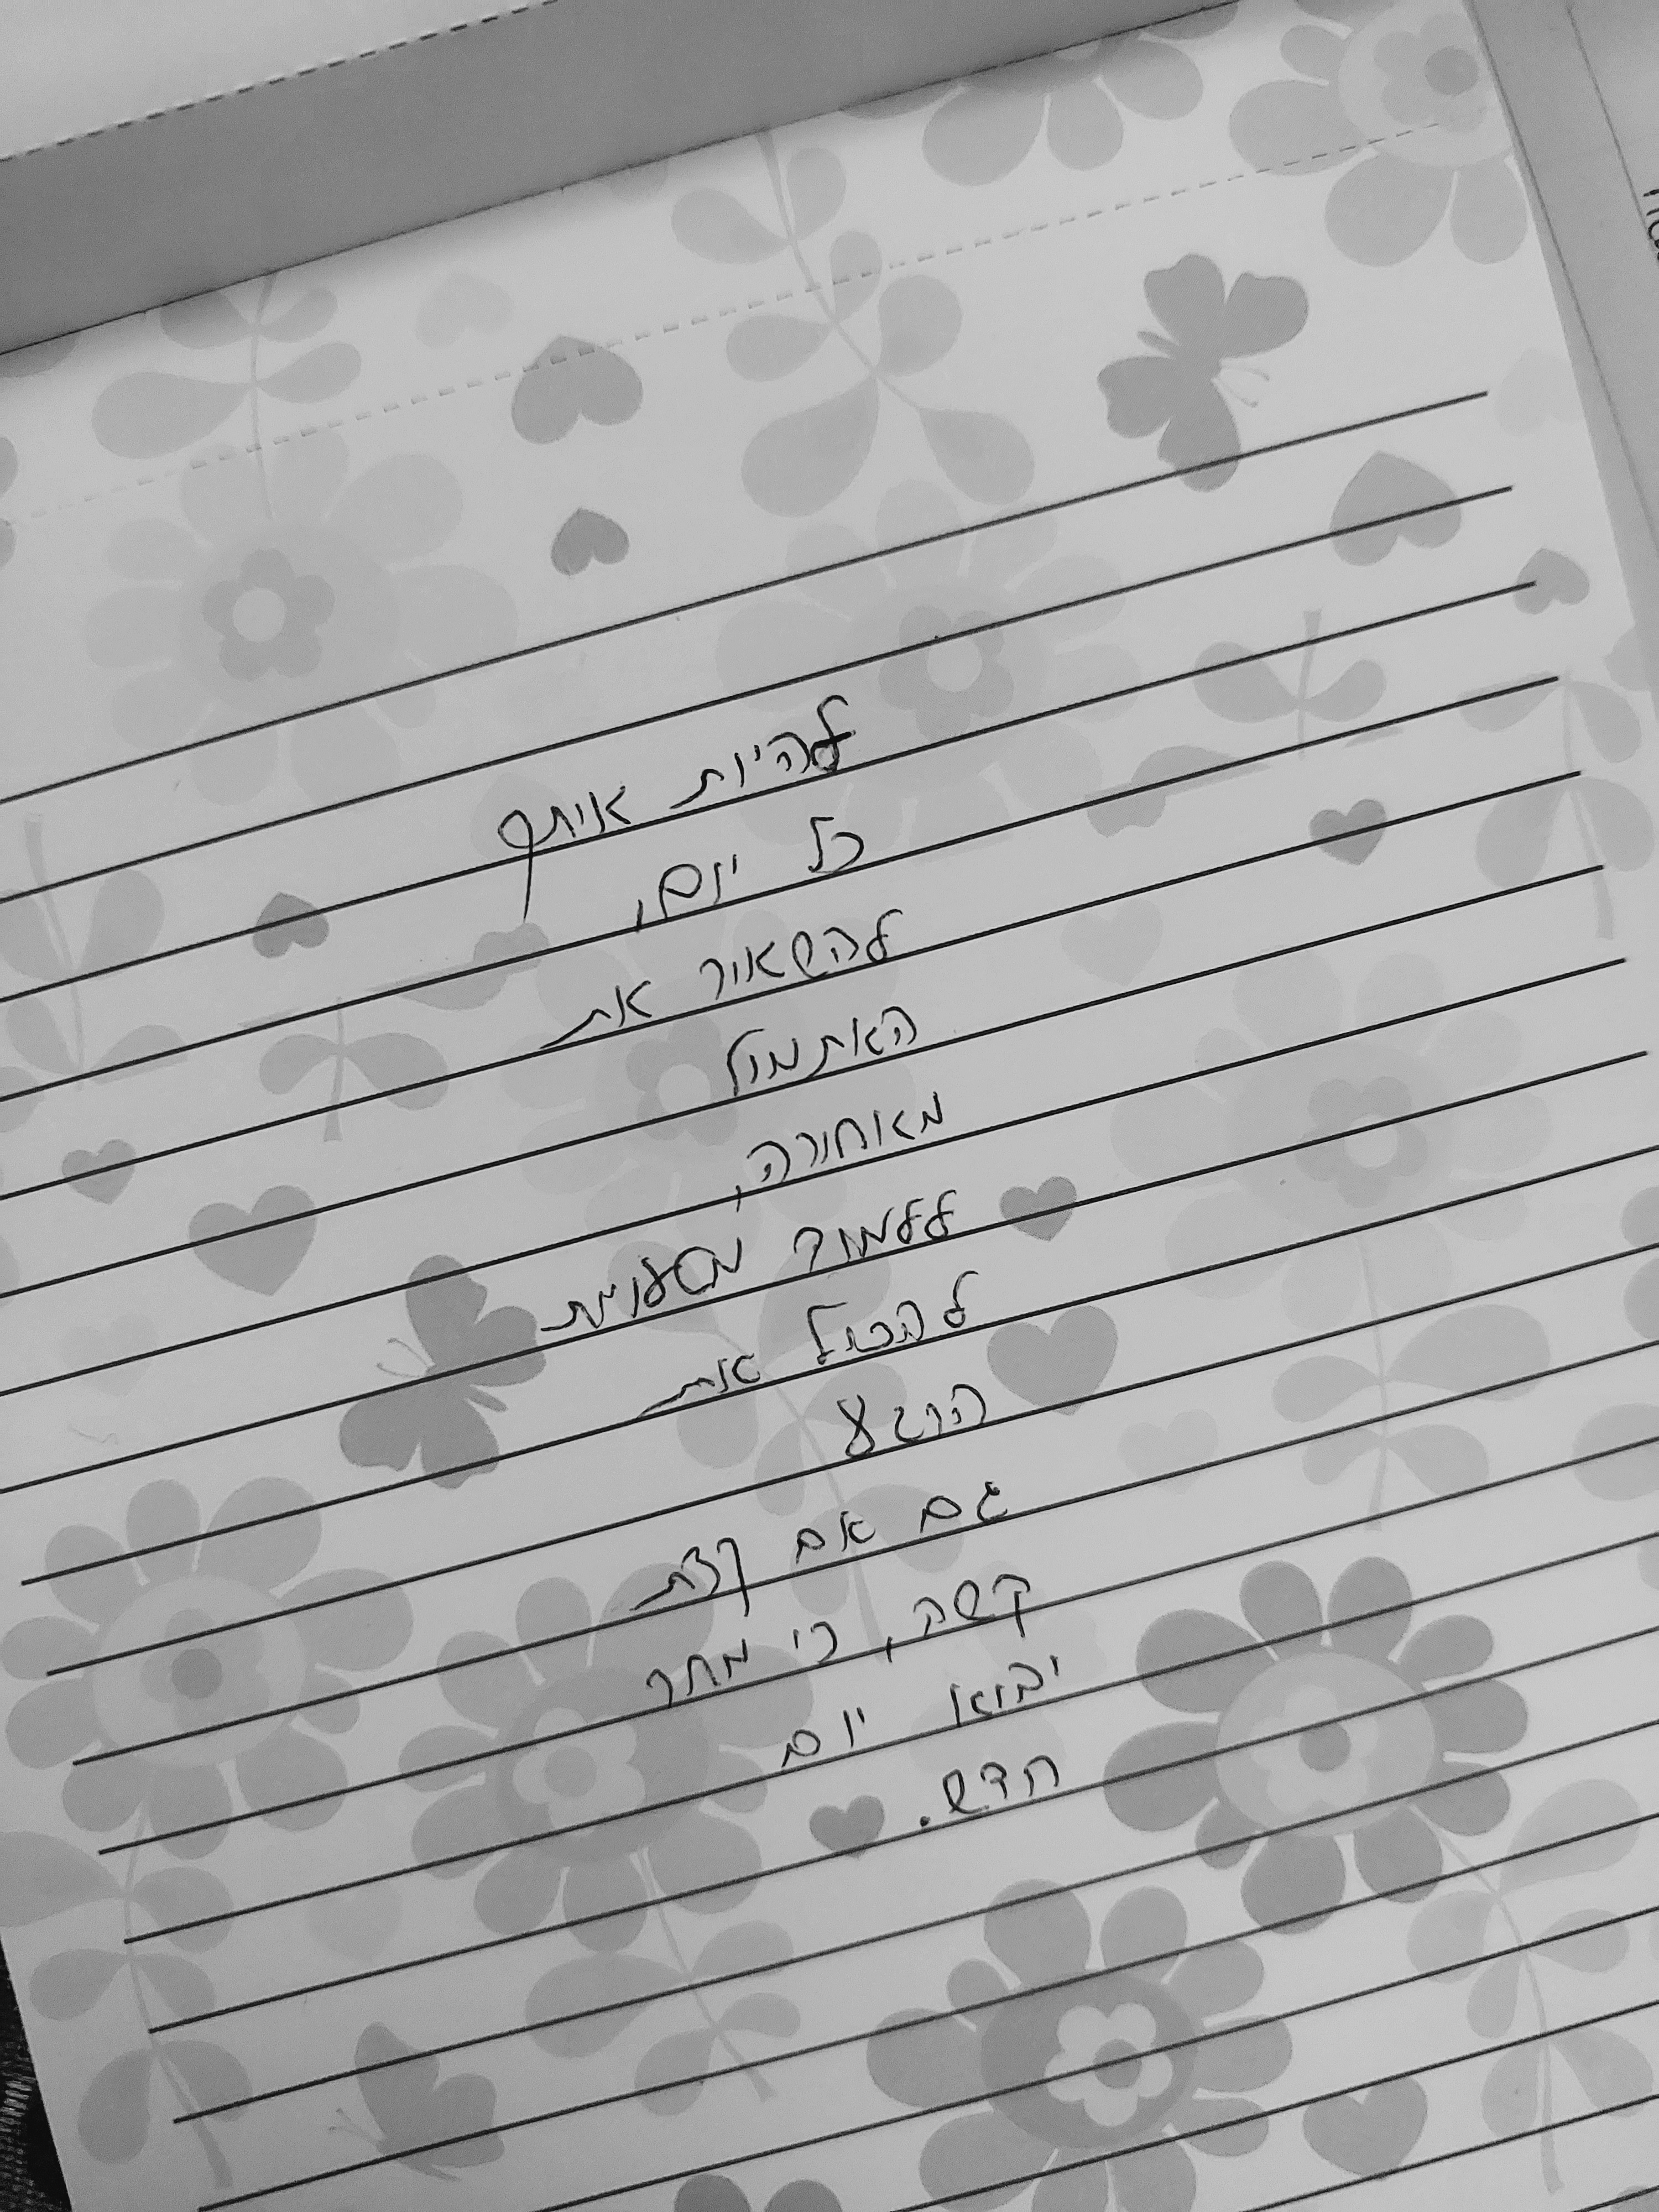 להיות איתך
כל יום,
להשאיר את
האתמול
מאחורה,
ללמוד מטעויות
להכיל את
הרגע
גם אם קצת
קשה, כי מחר
יבוא יום
חדש.